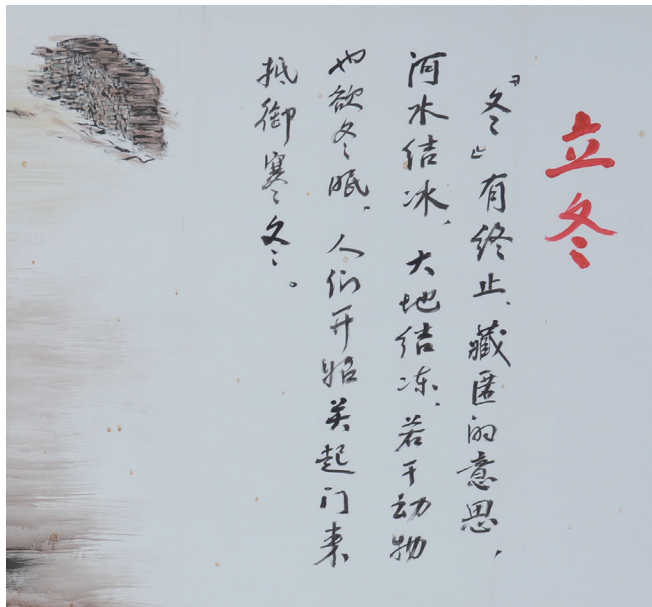 立冬
『冬』有终止、藏匿的意思，
河水结冰、大地结冻、若干动物
也欲冬眠、人们开始关起门来
抵御寒冬。